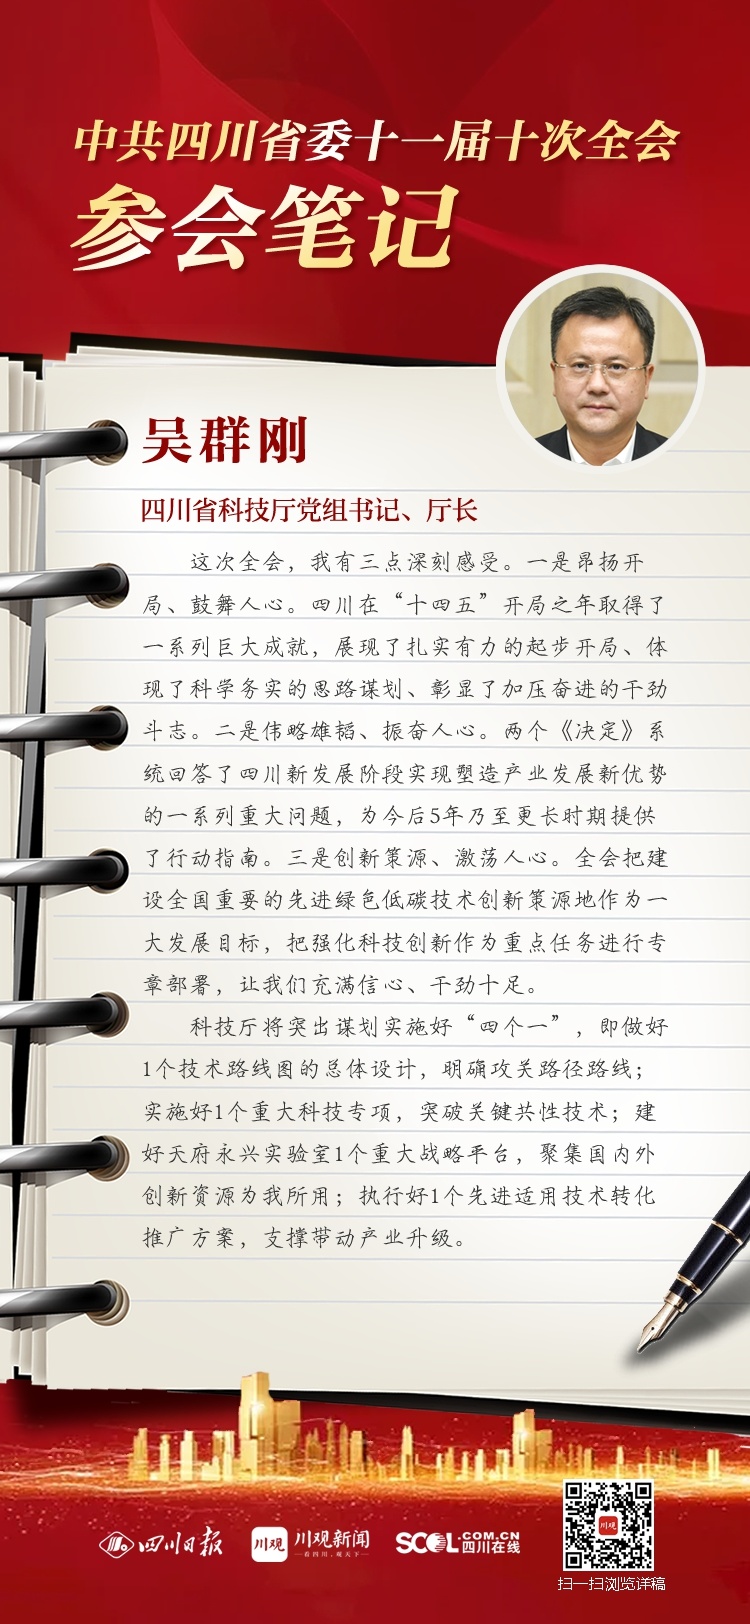 中共四川省委十一届十次全会
参会笔记
吴群刚
四川省科技厅党组书记、厅长
这次全会，我有三点深刻感受。一是昂扬开
局、鼓舞人心。四川在“十四五”开局之年取得了
一系列巨大成就，展现了扎实有力的起步开局、体
现了科学务实的思路谋划、彰显了加压奋进的干劲
斗志。二是伟略雄韬、振奋人心。两个《决定》系
统回答了四川新发展阶段实现塑造产业发展新优势
的一系列重大问题，为今后5年乃至更长时期提供
了行动指南。三是创新策源、激荡人心。全会把建
设全国重要的先进绿色低碳技术创新策源地作为一
大发展目标，把强化科技创新作为重点任务进行专
章部署，让我们充满信心、干劲十足。
科技厅将突出谋划实施好“四个一”，即做好
1个技术路线图的总体设计，明确攻关路径路线；
实施好1个重大科技专项，突破关键共性技术；建
好天府永兴实验室1个重大战略平台，聚集国内外
创新资源为我所用；执行好1个先进适用技术转化
推广方案，支撑带动产业升级。
四川日报 川观 川观新闻 SCOL.COM.CN 川观
看四川，观天下 四川在线
扫一扫浏览详稿